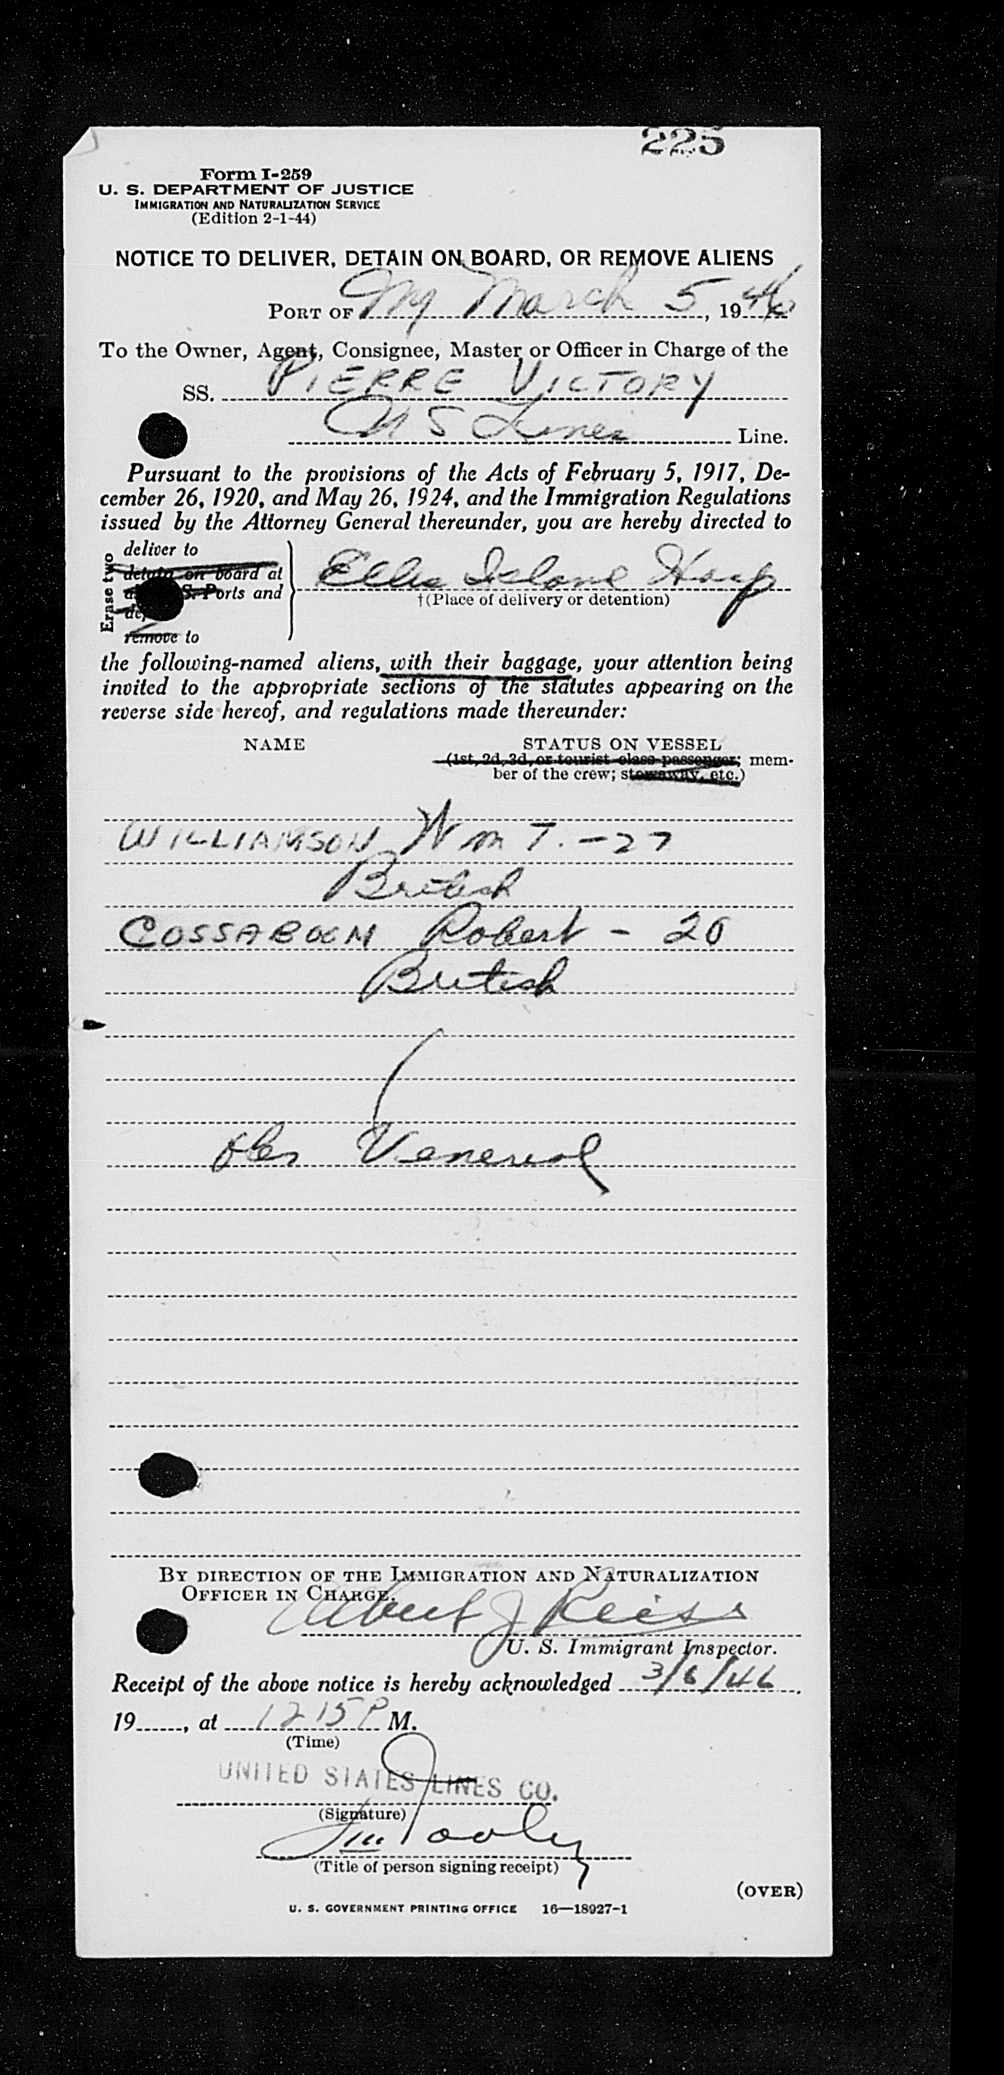 225
Form I-259
U. S. DEPARTMENT OF JUSTICE
IMMIGRATION AND NATURALIZATION SERVICE
(Edition 2-1-44)
NOTICE TO DELIVER, DETAIN ON BOARD, OR REMOVE ALIENS
PORT OF NY March 5, 1946
To the Owner, Agent, Consignee, Master or Officer in Charge of the
SS. PIERRE VICTORY
U S Lines Line.
Pursuant to the provisions of the Acts of February 5, 1917, De-
cember 26, 1920, and May 26, 1924, and the Immigration Regulations
issued by the Attorney General thereunder, you are hereby directed to
Erase two
deliver to
detain on board at
S. Ports and
remove to
Ellis Island Hosp
†(Place of delivery or detention)
the following-named aliens, with their baggage, your attention being
invited to the appropriate sections of the statutes appearing on the
reverse side hereof, and regulations made thereunder:
NAME STATUS ON VESSEL
(1st, 2d, 3d, or tourist class passenger; mem-
ber of the crew; stowaway, etc.)
WILLIAMSON Wm T. - 27
British
COSSABOOM Robert - 20
British
obs Venereal
BY DIRECTION OF THE IMMIGRATION AND NATURALIZATION
OFFICER IN CHARGE.
Albert J Reiss
U. S. Immigrant Inspector.
Receipt of the above notice is hereby acknowledged 3/6/46.
19......, at 12 15 P M.
(Time)
UNITED STATES LINES CO.
(Signature)
(Title of person signing receipt)
(OVER)
U. S. GOVERNMENT PRINTING OFFICE 16—18927-1